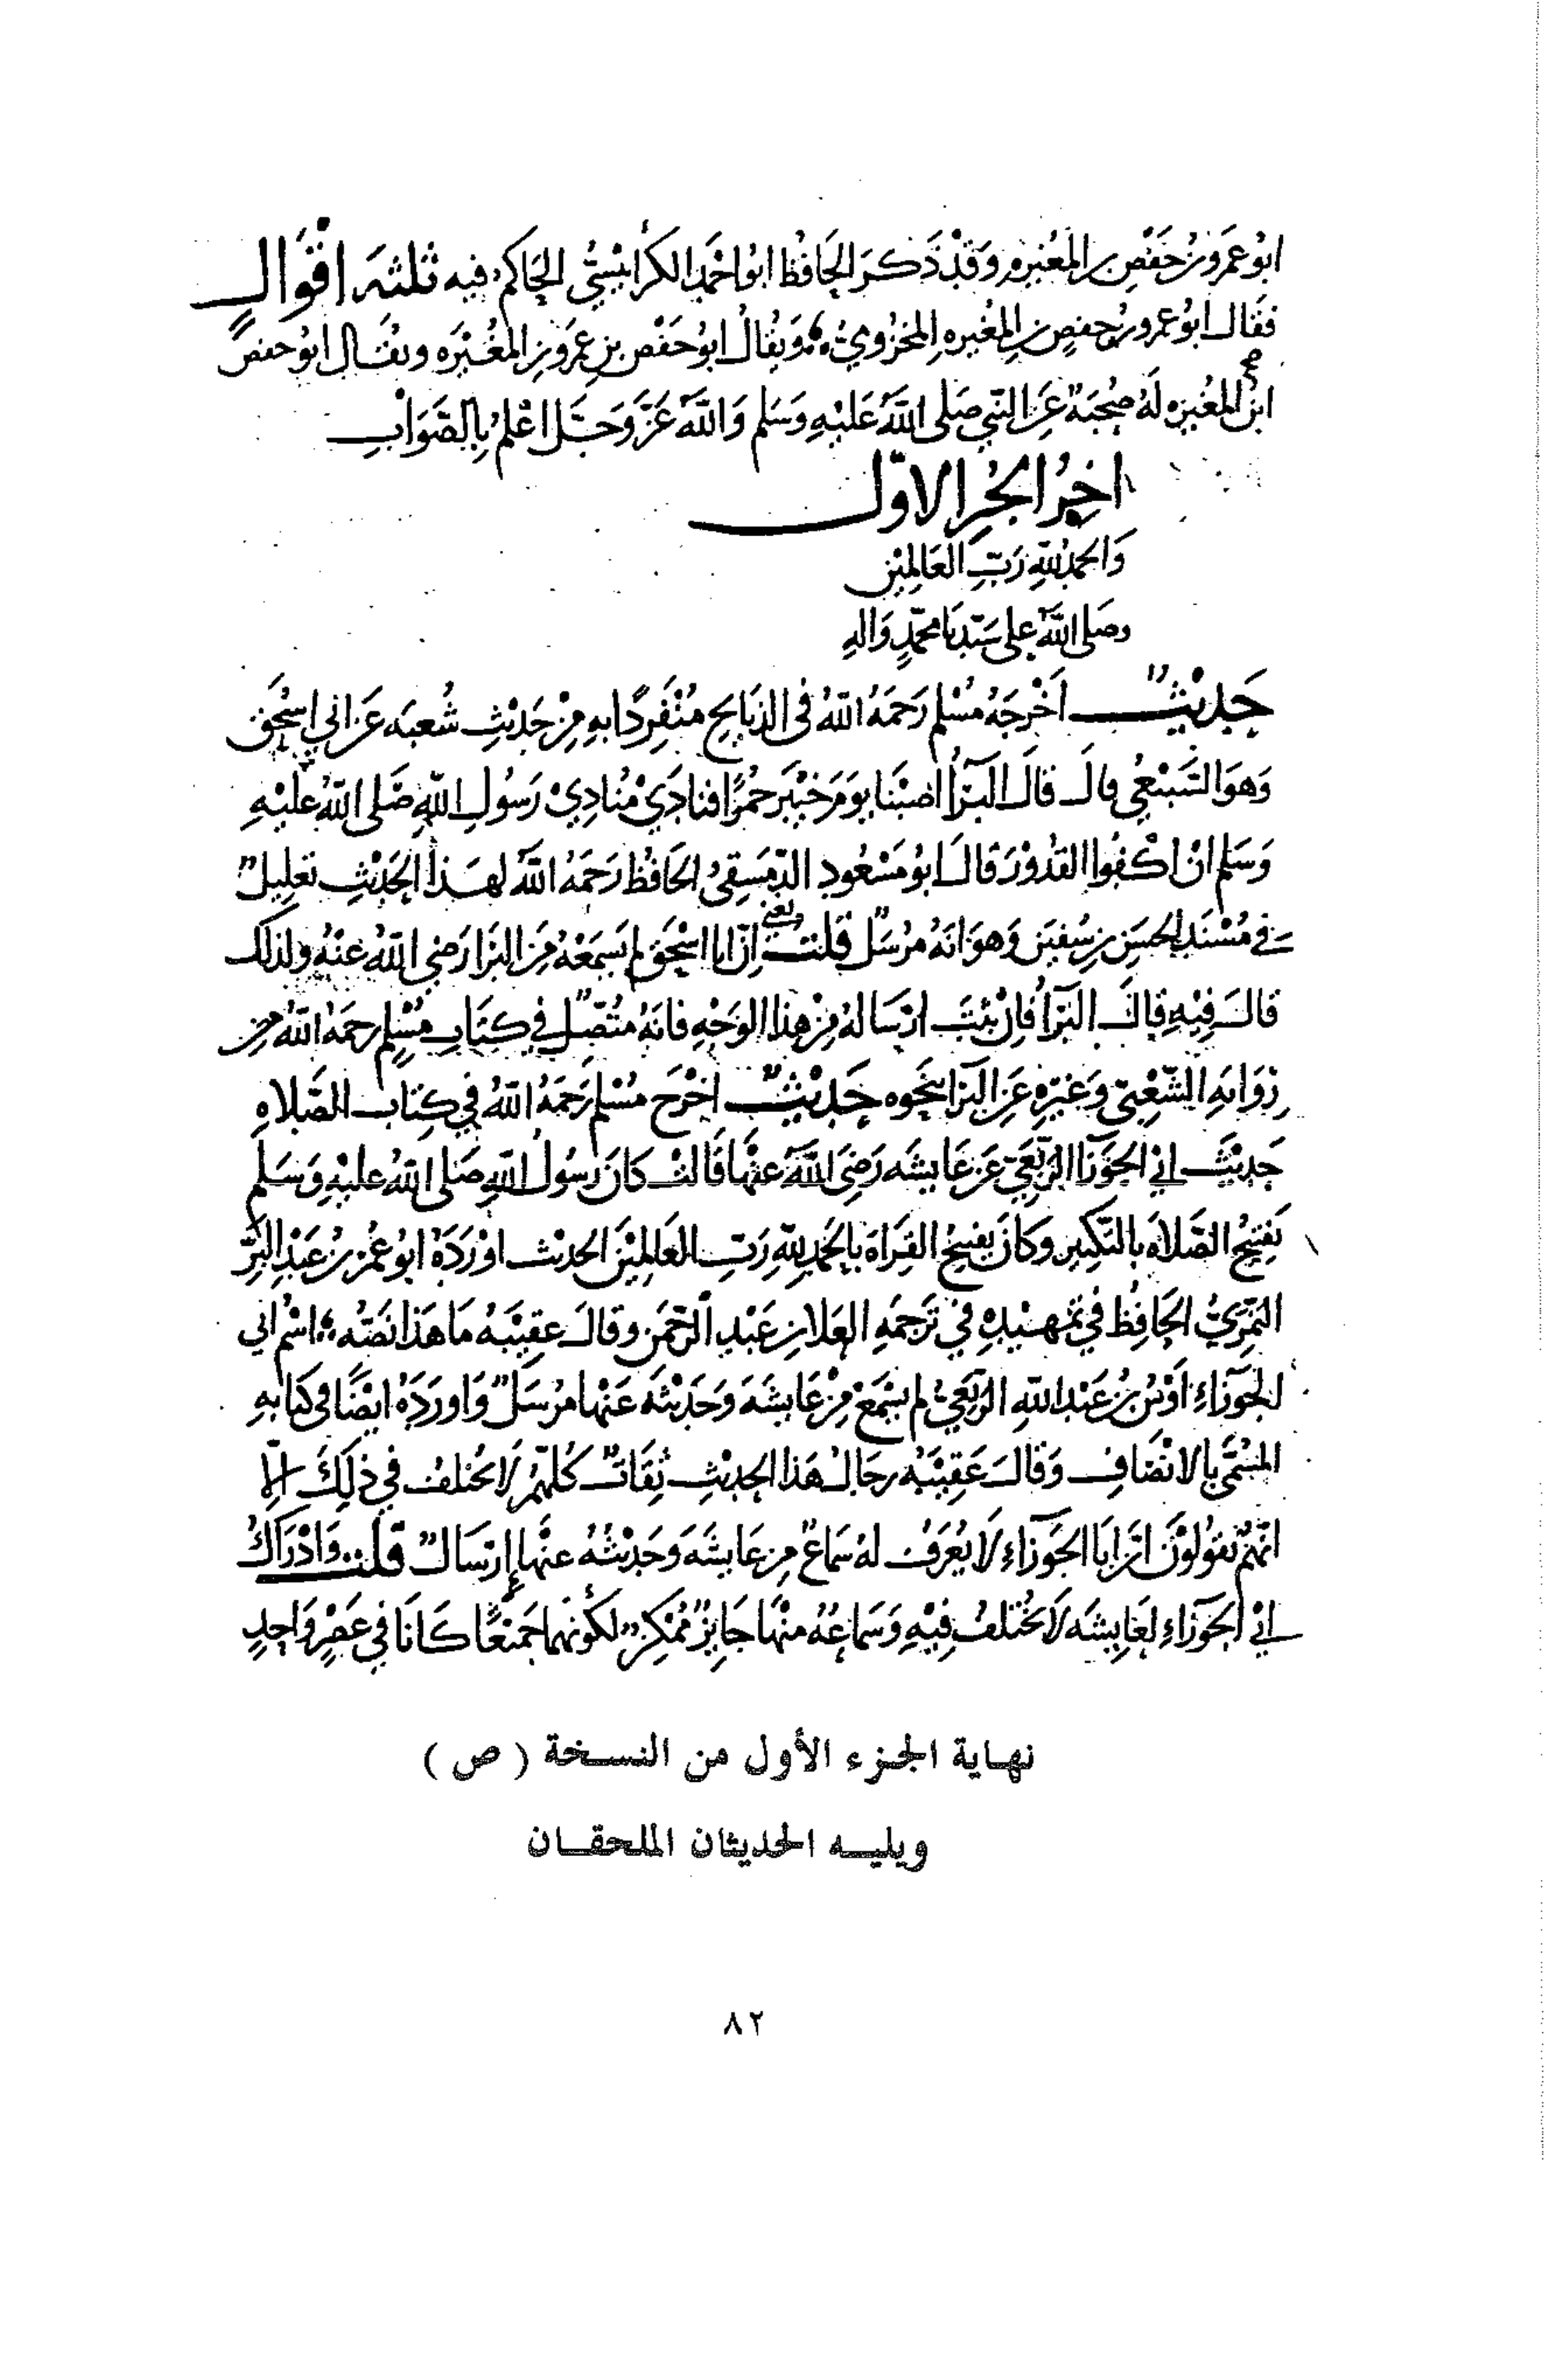 ابُو عَمرو بنُ حَفْصِ بن المُغيرهِ وَقَدْ ذَكَرَ الحَافظ ابُو احْمَد الكرَابيْسيُّ الحَاكم فيه ثلثة اقْوَالٍ
فقَالَ ابُو عمرو بنُ حفصٍ بنِ المُغيره المخزُوميُّ وَيُقالُ ابُو حَفْص بنِ عَمرو بنِ المُغيْرَه ويُقَال ابُو حفصٍ
ابنُ المُغيره لَهُ صُحبَة عَن النَّبي صَلى اللَّه عَليْهِ وَسَلم وَاللَّه عَزَّ وَجَلَّ اعْلمُ بِالصَّوَابِ
اخِرُ الجُز الاوّل
وَالحمدُ للّهِ رَبِّ العَالمِيْن
وصَلى اللَّه على سَيّدنَا محمّدٍ وَالهِ
حَدِيْثٌ اَخْرجَهُ مُسْلم رَحمَهُ اللهُ فى الذبَايح مُنْفَردًا بهِ مِنْ حَديْثِ شُعبَه عَن ابي اسْحٰق
وَهوَ السَّبيْعِى قالَ قالَ البَرَاُ اصَبْنَا يومَ خَيْبَر حمُرًا فنادَي مُنَادِيْ رَسُولِ اللهِ صَلى اللهُ عليْهِ
وَسَلم انْ اكْفوا القدُوْرَ قالَ ابُو مَسْعُودٍ الدّمَشقىُ الحَافظ رَحمَهُ اللهُ لهَذا الحَدِيْثِ تعلِيلٌ
في مُسْنَدِ الحسَن بن سُفيٰن وَهوَ انَهُ مرْسَلٌ قلتُ يعني اِنّ ابا اسْحٰق لم يَسمَعْهُ مِن البَرا رَضي اللهُ عنْهُ ولذلك
قالَ فِيْهِ قالَ البَرَاُ فاِنْ ثبَتَ ارْسَالهُ مِنْ هذا الوَجْهِ فانهُ مُتّصلٌ في كِتَابِ مُسْلمٍ رحمَهُ اللهُ مِن
رِوَايَةِ الشَّعْبِيّ وَغيْرِهِ عَنِ البَرَا بنَحْوه حَدِيْثٌ اخْرَجَ مُسْلم رَحمَهُ اللهُ في كِتَاب الصَّلاهِ
حَدِيْثَ ابي الجَوْزا الرَّبَعِيّ عَن عَايشَه رَضيَ اللّهُ عنْهَا قالتْ كانَ رَسُولُ اللهِ صَلى اللهُ عليْهِ وَسَلم
يَفتِتحُ الصَّلاَه بالتَّكبِير وَكانَ يفتِتحُ القِرَاة بالحمدِ للهِ رَبّ العَالمِيْن الحديْث اوْرَدَهُ ابُو عُمَر بنُ عَبْدِ البَرِّ
النمَرِيُّ الحَافِظ في تمهيْدِهِ في تَرجَمَة العَلا بن عَبْدِ الرّحمَن وقالَ عقِيْبَهُ مَا هَذا نَصّه اسْم ابي
الجَوْزَاءِ اَوْسُ بنُ عَبْدِ اللهِ الرّبَعِيُّ لم يَسْمَعْ مِنْ عَايشَةَ وَحَدِيثُه عَنْها مُرْسَلٌ وَاوردَهُ ايْضًا فى كتابهِ
المسَمَّى بالانْصَافِ وَقالَ عَقِيْبَهُ رجَالُ هَذا الحَديْثِ ثِقَاتٌ كلّهُمْ لاَ يختَلفُ في ذلِكَ اِلاّ
انّهُمْ يَقولوْنَ انّ ابا الجَوْزَاءِ لاَ يعُرَفُ لهُ سَماعٌ مِن عَايشَةَ وَحَدِيْثُهُ عنْهَا اِرْسَالٌ قلتُ وَاِدْرَاكُ
ابي الجَوْزَاءِ لعَايشَه لاَ يُختَلفُ فيْهِ وَسَماعُهُ منْهَا جَايزٌ ممُكنٌ لكونهِما جَميْعًا كَانَا في عَصْرٍ وَاحِدٍ
نهاية الجزء الأول من النسخة ( ص )
ويليه الحديثان الملحقان
٨٢